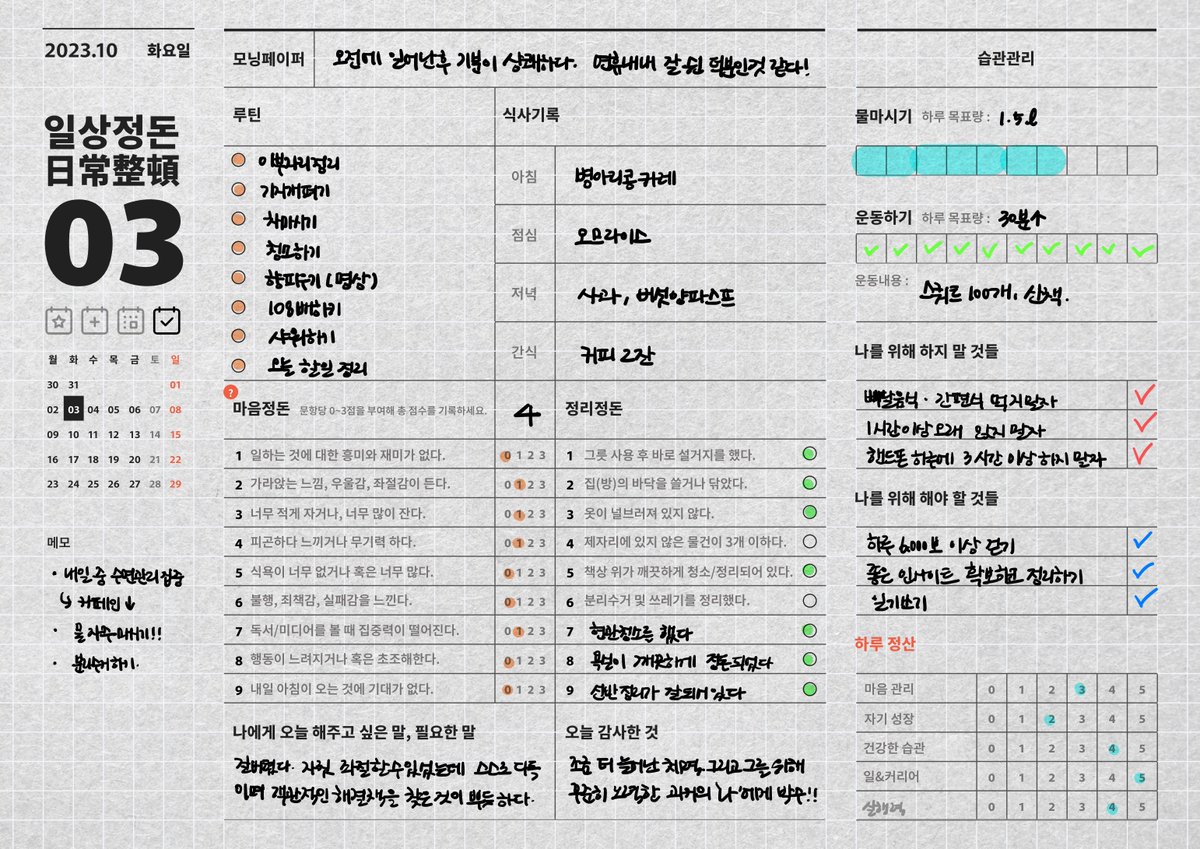 2023.10 화요일
일상정돈
日常整頓
03
월 화 수 목 금 토 일
30 31 01
02 03 04 05 06 07 08
09 10 11 12 13 14 15
16 17 18 19 20 21 22
23 24 25 26 27 28 29
메모
• 내일 중 수면관리 집중
↳ 카페인↓
• 물 자주 마시기!!
• 분리수거하기.
모닝페이퍼 오전에 일어난후 기분이 상쾌하다. 연휴내내 잘 쉰 덕분인것 같다!
루틴
이부자리정리
기지개펴기
차마시기
청소하기
향피우기 (명상)
108배하기
샤워하기
오늘 할일 정리
식사기록
아침 병아리콩카레
점심 오므라이스
저녁 사과, 버섯양파스프
간식 커피 2잔
?
마음정돈 문항당 0~3점을 부여해 총 점수를 기록하세요. 4
1 일하는 것에 대한 흥미와 재미가 없다. 0 1 2 3
2 가라앉는 느낌, 우울감, 좌절감이 든다. 0 1 2 3
3 너무 적게 자거나, 너무 많이 잔다. 0 1 2 3
4 피곤하다 느끼거나 무기력 하다. 0 1 2 3
5 식욕이 너무 없거나 혹은 너무 많다. 0 1 2 3
6 불행, 죄책감, 실패감을 느낀다. 0 1 2 3
7 독서/미디어를 볼 때 집중력이 떨어진다. 0 1 2 3
8 행동이 느려지거나 혹은 초조해한다. 0 1 2 3
9 내일 아침이 오는 것에 기대가 없다. 0 1 2 3
정리정돈
1 그릇 사용 후 바로 설거지를 했다.
2 집(방)의 바닥을 쓸거나 닦았다.
3 옷이 널브러져 있지 않다.
4 제자리에 있지 않은 물건이 3개 이하다.
5 책상 위가 깨끗하게 청소/정리되어 있다.
6 분리수거 및 쓰레기를 정리했다.
7 현관청소를 했다
8 욕실이 깨끗하게 정돈되었다
9 선반정리가 잘되어있다
나에게 오늘 해주고 싶은 말, 필요한 말
잘버텼다. 자칫 좌절할수있었는데 스스로 다독
이며 객관적인 해결책을 찾은것이 뿌듯하다.
오늘 감사한 것
조금 더 늘어난 체력, 그리고 그를 위해
꾸준히 노력한 과거의 '나'에게 박수!!
습관관리
물마시기 하루 목표량 : 1.5ℓ
운동하기 하루 목표량 : 30분↑
운동내용 : 스쿼트 100개, 산책.
나를 위해 하지 말 것들
배달음식 · 간편식 먹지말자
1시간이상 오래 앉지 말자
핸드폰 하루에 3시간 이상 하지 말자
나를 위해 해야 할 것들
하루 6,000보 이상 걷기
좋은 인사이트 확보하고 정리하기
일기쓰기
하루 정산
마음 관리 0 1 2 3 4 5
자기 성장 0 1 2 3 4 5
건강한 습관 0 1 2 3 4 5
일&커리어 0 1 2 3 4 5
실행력 0 1 2 3 4 5